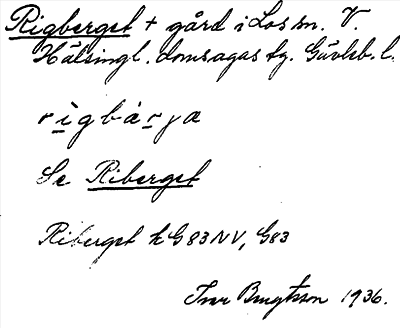 Rigberget + gård i Los sn. V.
Hälsingl. domsagas tg. Gävleb. l.
rìgbárja
Se Riberget
Riberget k G 83 NV, G83
Ivar Bengtsson 1936.